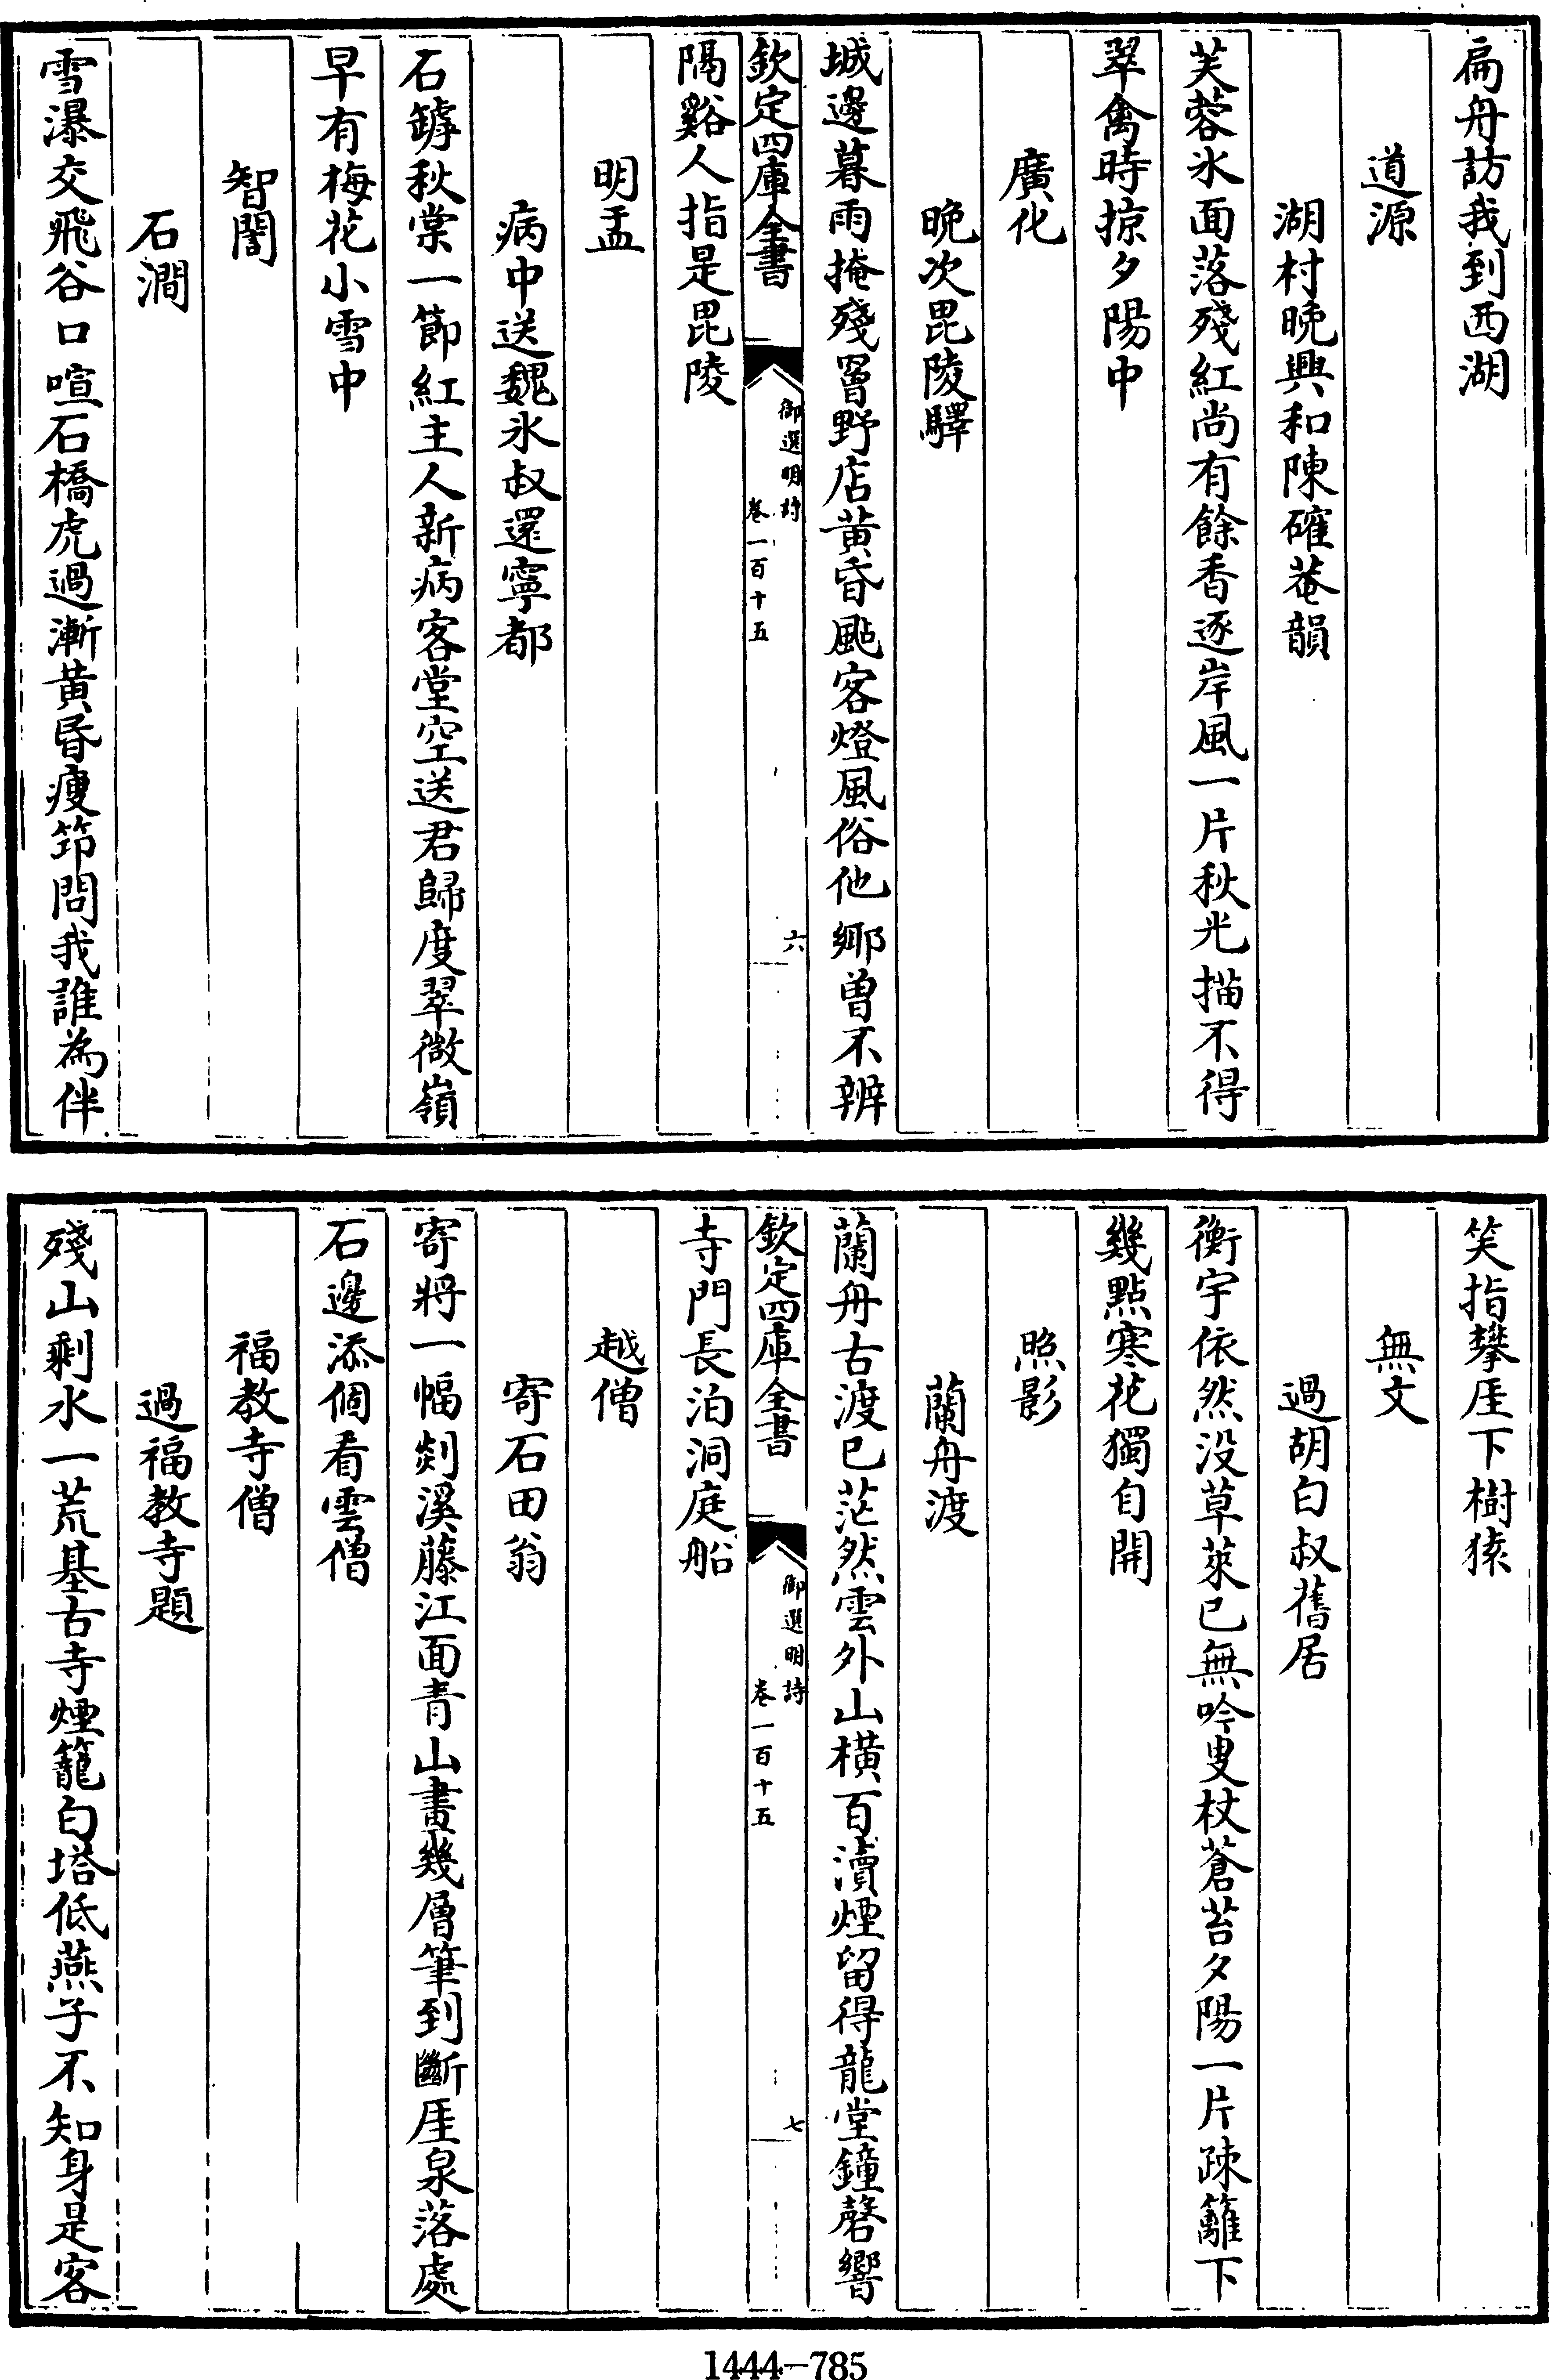 扁舟訪我到西湖
道源
湖村晚興和陳確菴韻
芙蓉氷面落殘紅尚有餘香逐岸風一片秋光描不得
翠禽時掠夕陽中
廣化
晚次毘陵驛
城邊暮雨掩殘罾野店黃昏颭客燈風俗他鄉曾不辨
欽定四庫全書
御選明詩
卷一百十五
六
隔谿人指是毘陵
明盂
病中送魏氷叔還寧都
石罅秋棠一節紅主人新病客堂空送君歸度翠微嶺
早有梅花小雪中
智誾
石澗
雪瀑交飛谷口喧石橋虎過漸黃昏瘦笻問我誰為伴
笑指攀厓下樹猿
無文
過胡白叔舊居
衡宇依然没草萊已無吟叟杖蒼苔夕陽一片疎籬下
幾點寒花獨自開
照影
蘭舟渡
蘭舟古渡已茫然雲外山橫百瀆煙留得龍堂鐘磬響
欽定四庫全書
御選明詩
卷一百十五
七
寺門長泊洞庭船
越僧
寄石田翁
寄將一幅剡溪藤江面青山畫幾層筆到斷厓泉落處
石邊添個看雲僧
福教寺僧
過福教寺題
殘山剩水一荒基古寺煙籠白塔低燕子不知身是客
1444-785